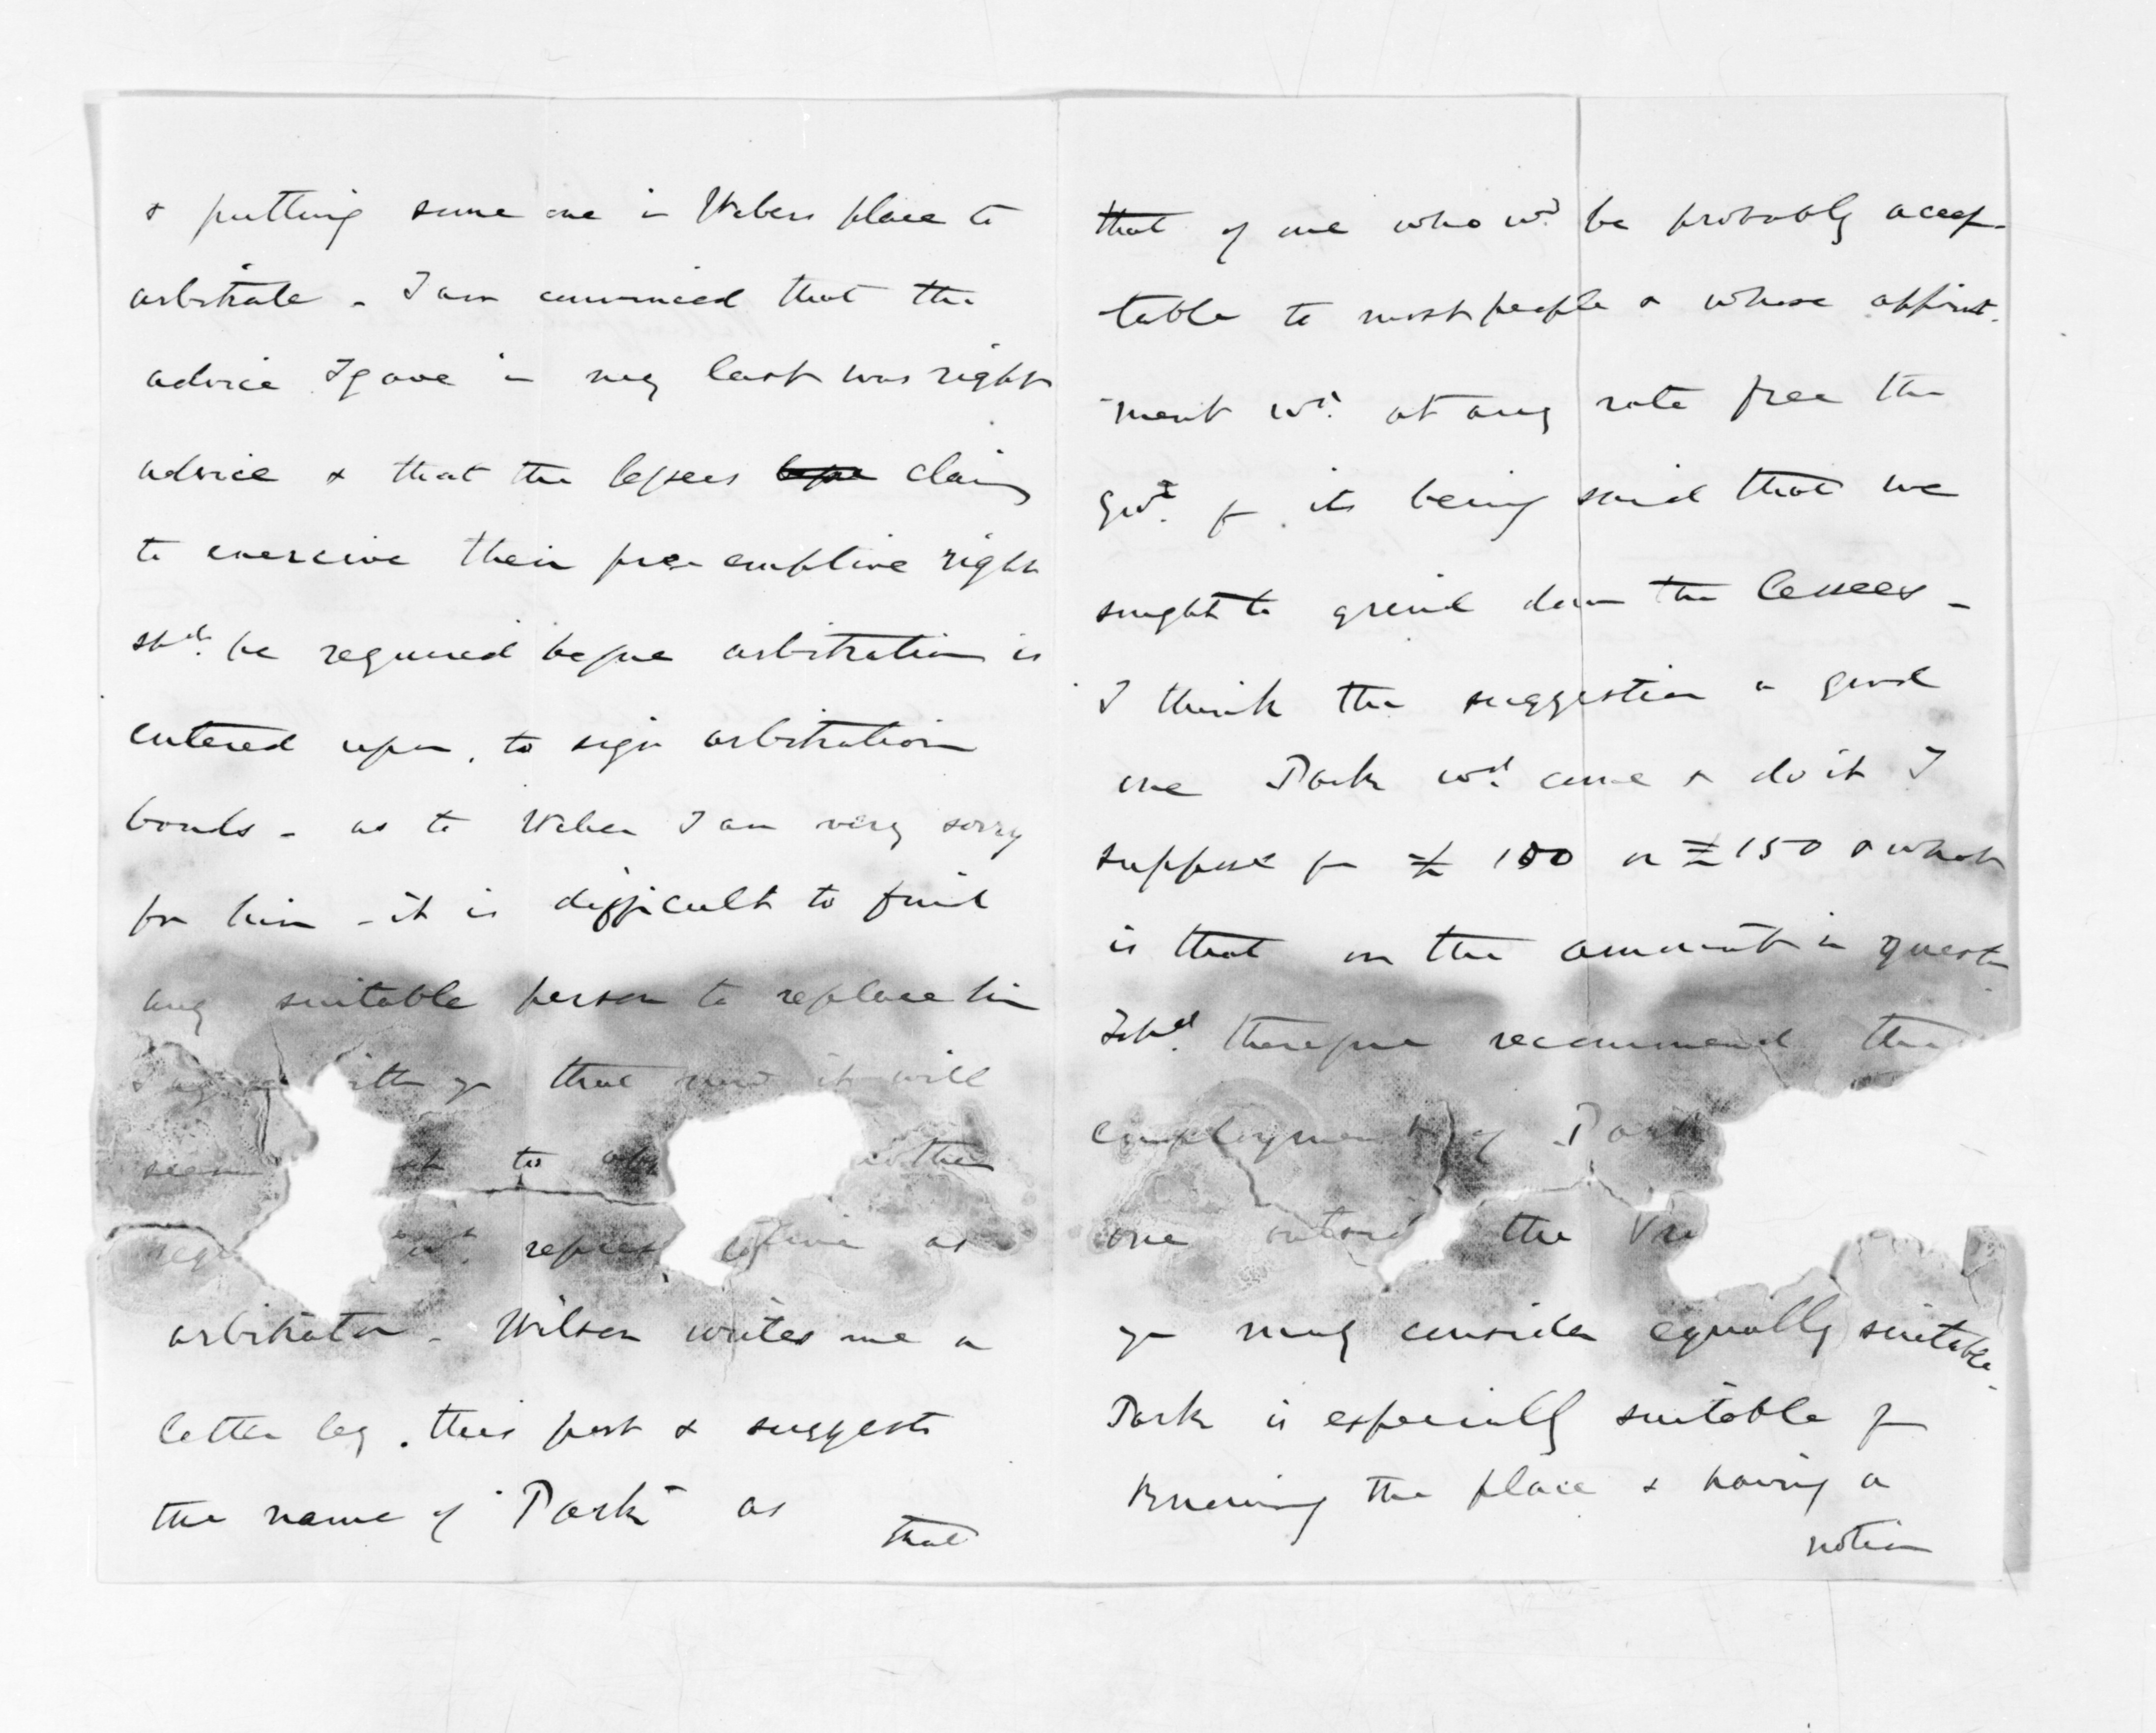 & putting some one in Webers place to
arbitrate - I am convinced that the
advice I gave in my last was right
advice & that the lessees claiming
to exercise their pre emptive right
shd. be required before arbitration is
entered upon, to sign arbitration
bonds - as to Weber I am very sorry
for him - it is difficult to find
any suitable person to replace him
with you that now it will
seem to
repres as
arbitrator - Wilson writes me a
letter by this post & suggests
the name of "Park" as
that
that of one who wd. be probably accep-
table to most people & whose appoint-
ment wd. at any rate free the
Govt. fr. its being said that we
sought to grind down the lessees -
I think the suggestion a good
one Park wd. come & do it I
suppose for £100 or £150 & what
is that on the amount in questn
I shd. therefore recommend the
employment of Park
one outside the
you may consider equally suitable.
Park is especially suitable fr
knowing the place & having a
notion